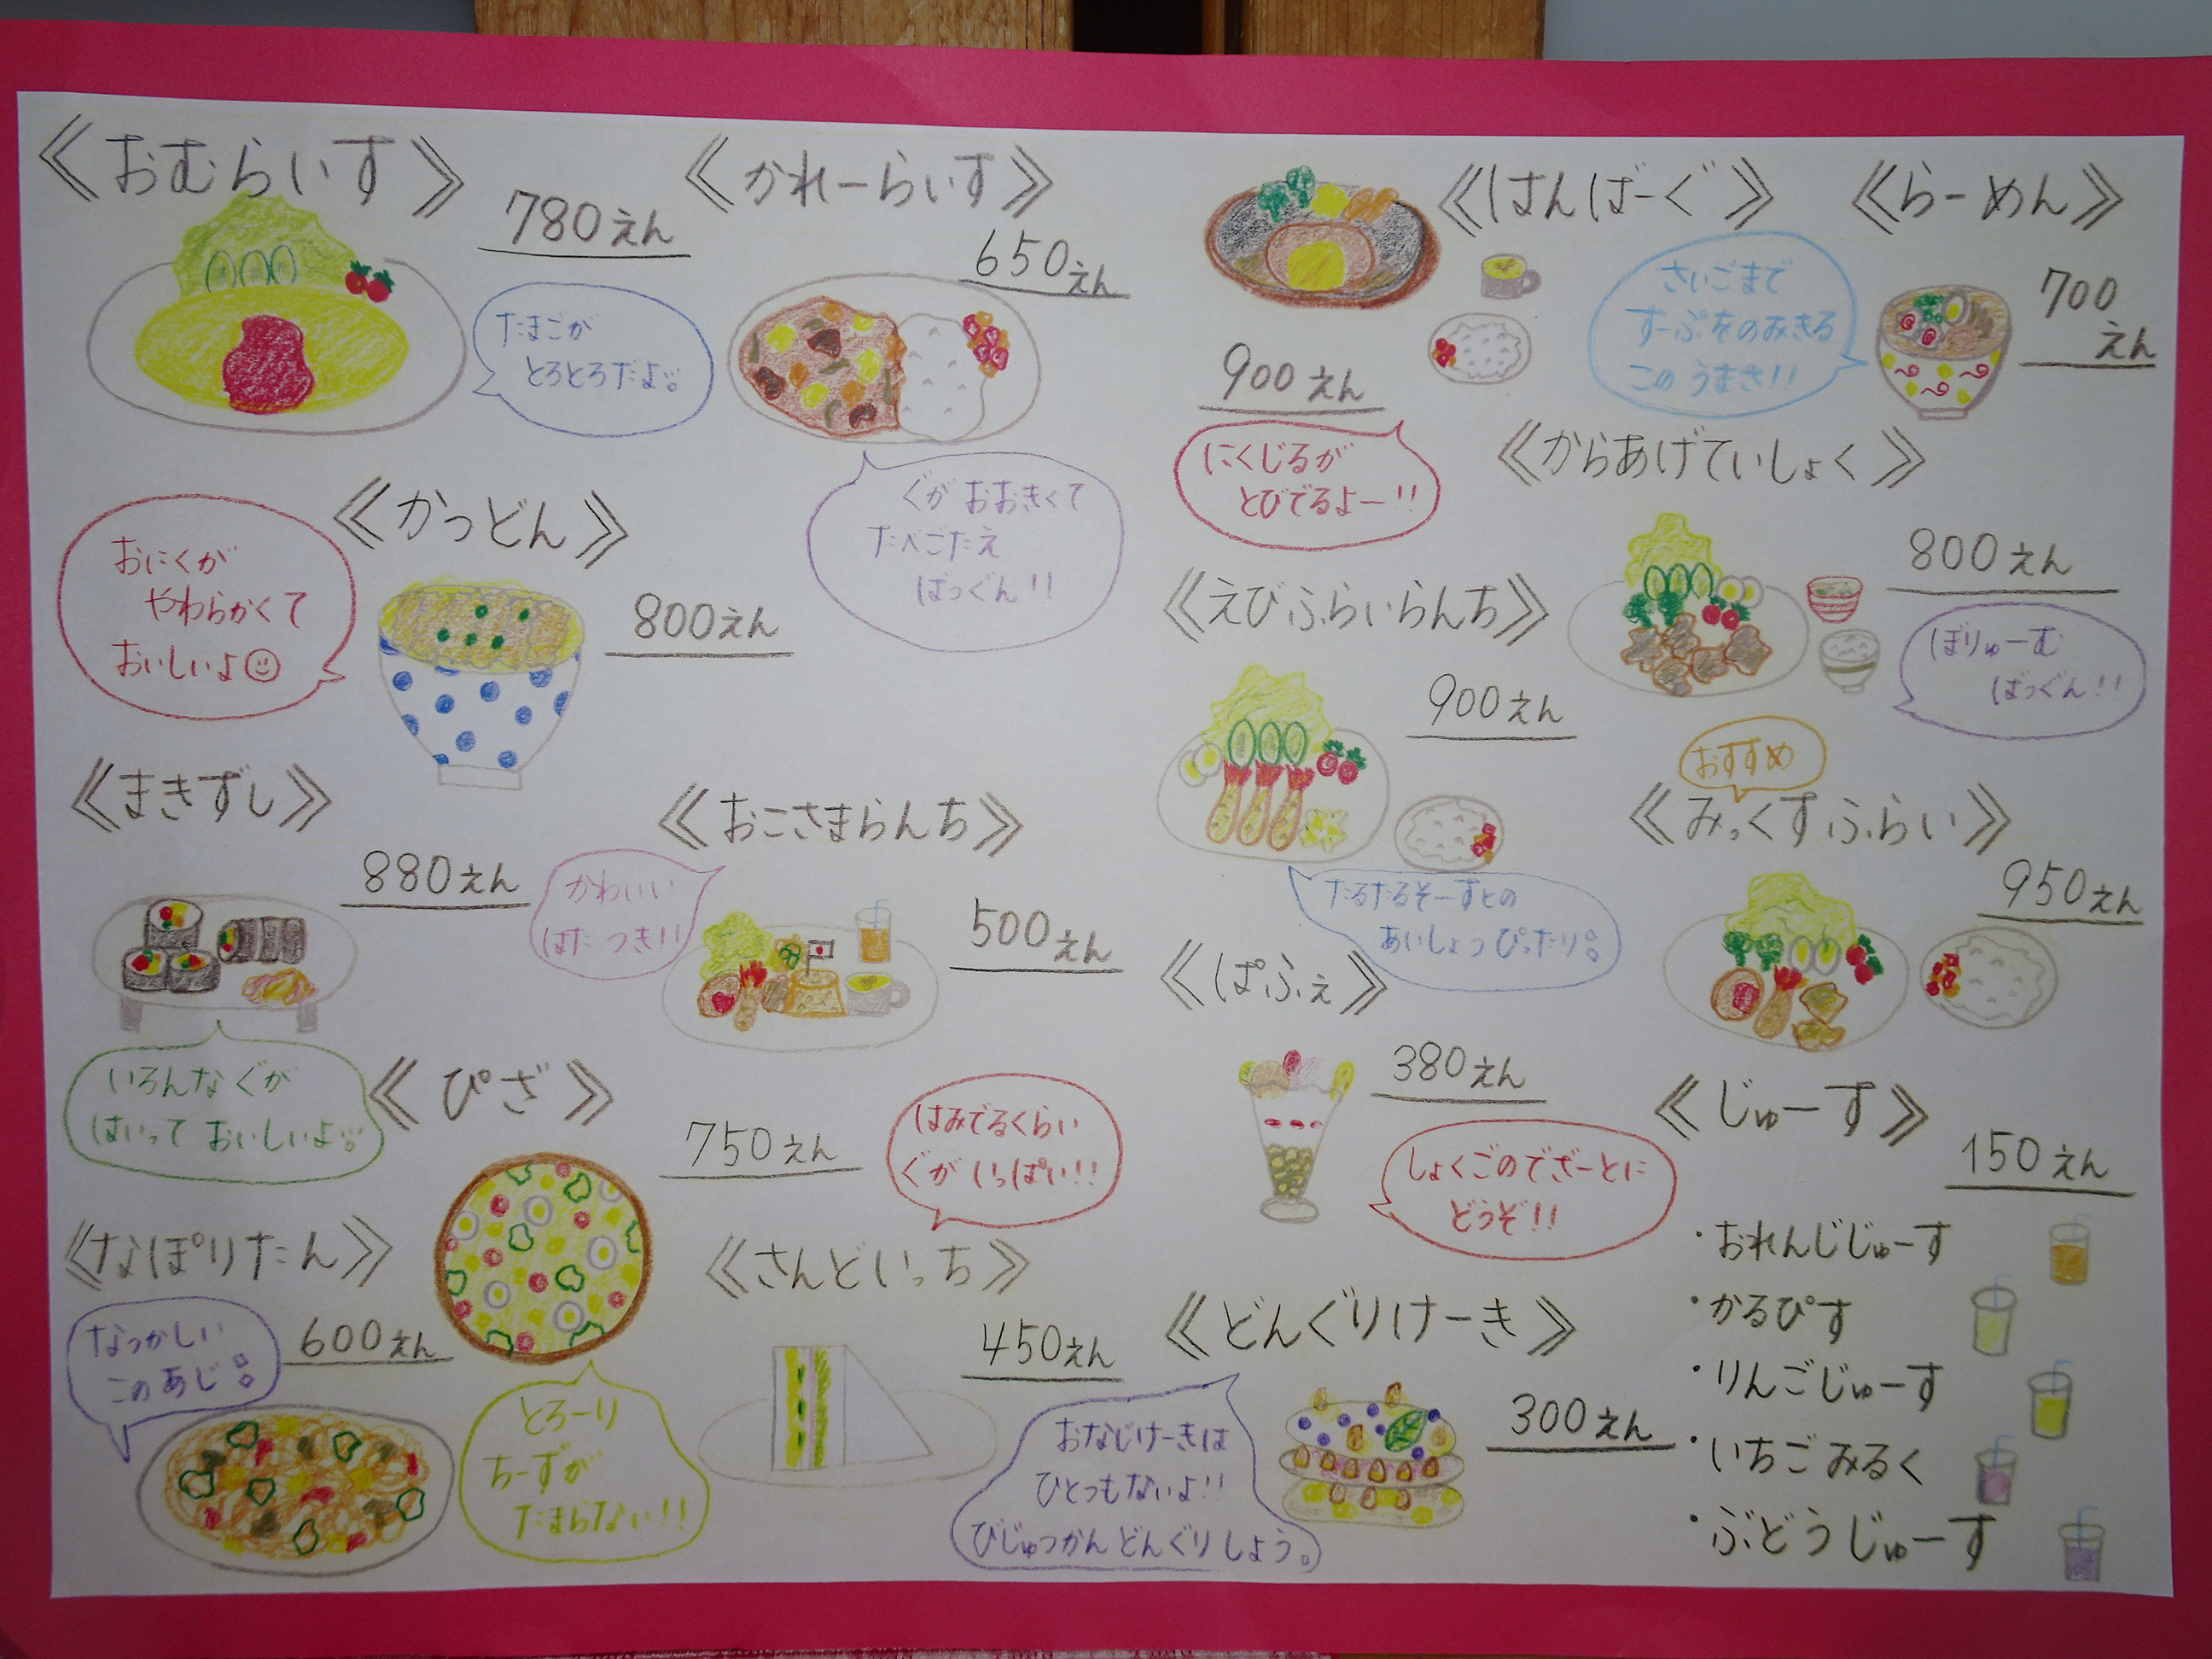 《おむらいす》
780えん
たまごが
とろとろだよ。
《かれーらいす》
650えん
ぐが おおきくて
たべごたえ
ばっぐん!!
《かつどん》
800えん
おにくが
やわらかくて
おいしいよ
《まきずし》
880えん
いろんな ぐが
はいって おいしいよ。
《おこさまらんち》
500えん
かわいい
はた つき!!
《ぴざ》
750えん
とろーり
ちーずが
たまらない!!
《なぽりたん》
600えん
なつかしい
このあじ。
《さんどいっち》
450えん
はみでるくらい
ぐが いっぱい!!
《はんばーぐ》
900えん
にくじるが
とびでるよー!!
《らーめん》
700
えん
さいごまで
すーぷをのみきる
この うまさ!!
《からあげていしょく》
800えん
ぼりゅーむ
ばっぐん!!
《えびふらいらんち》
900えん
たるたるそーすとの
あいしょう ぴったり。
おすすめ
《みっくすふらい》
950えん
《ぱふぇ》
380えん
しょくごのでざーとに
どうぞ!!
《どんぐりけーき》
300えん
おなじけーきは
ひとつもないよ!!
びじゅつかん どんぐり しょう。
《じゅーす》
150えん
・おれんじじゅーす
・かるぴす
・りんごじゅーす
・いちごみるく
・ぶどうじゅーす